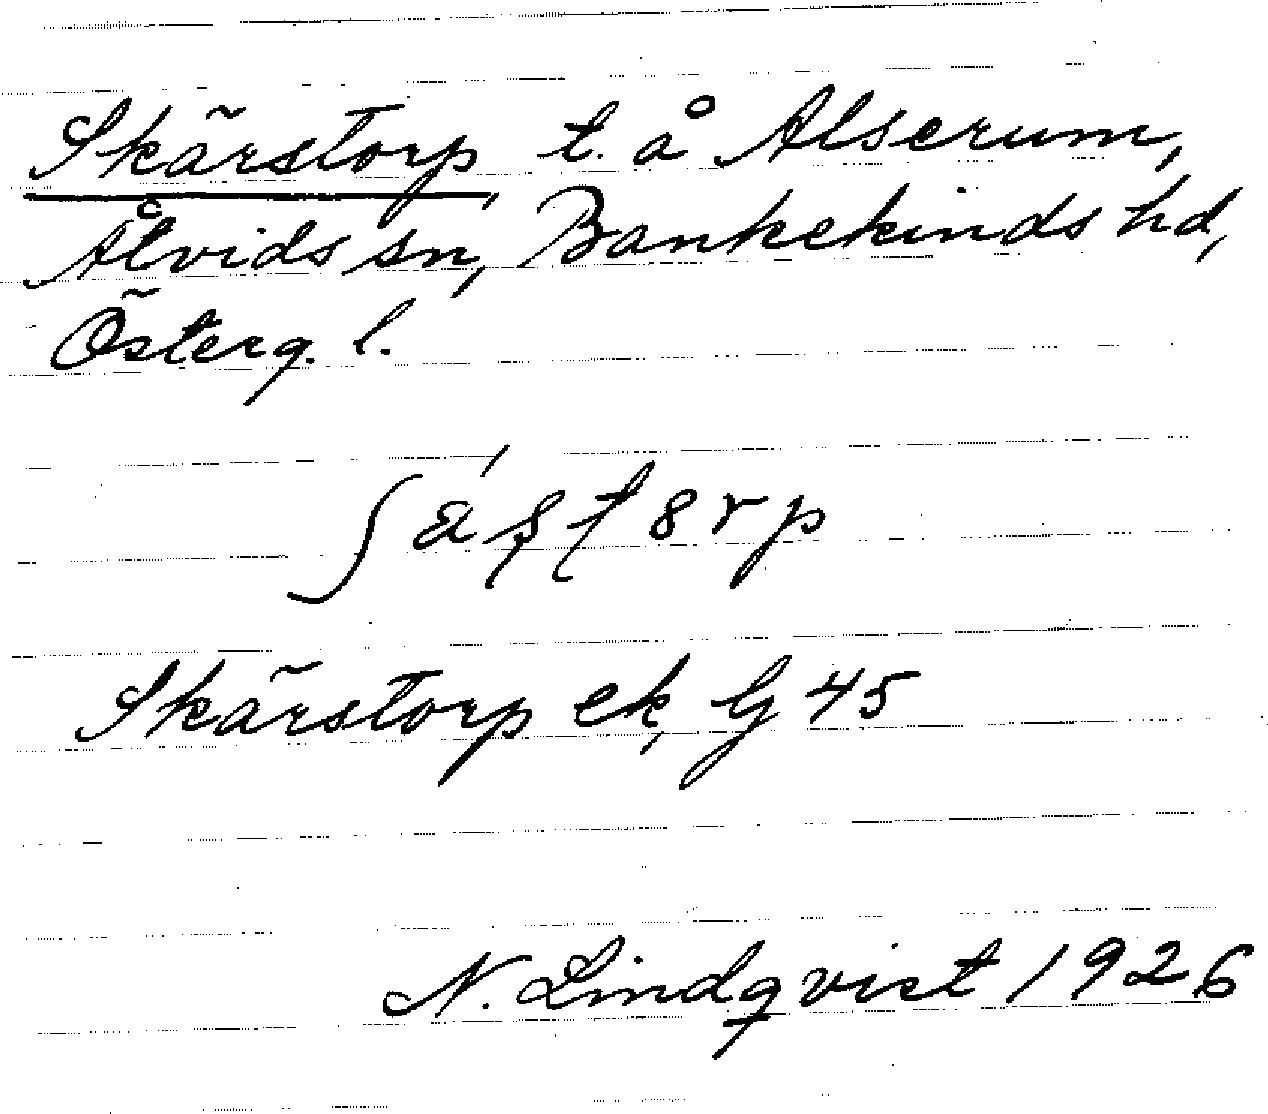 Skärstorp t. å Alserum,
Åtvids sn, Bankekinds hd,
Österg. l.
Skärstorp ek, G 45
N. Lindqvist 1926